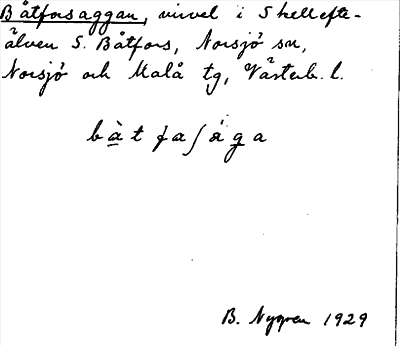 Båtforsaggan, virvel i Skellefte-
älven S. Båtfors, Norsjö sn,
Norsjö och Malå tg, Västerb. l.
bàt fa ʃ ág a
B. Nygren 1929